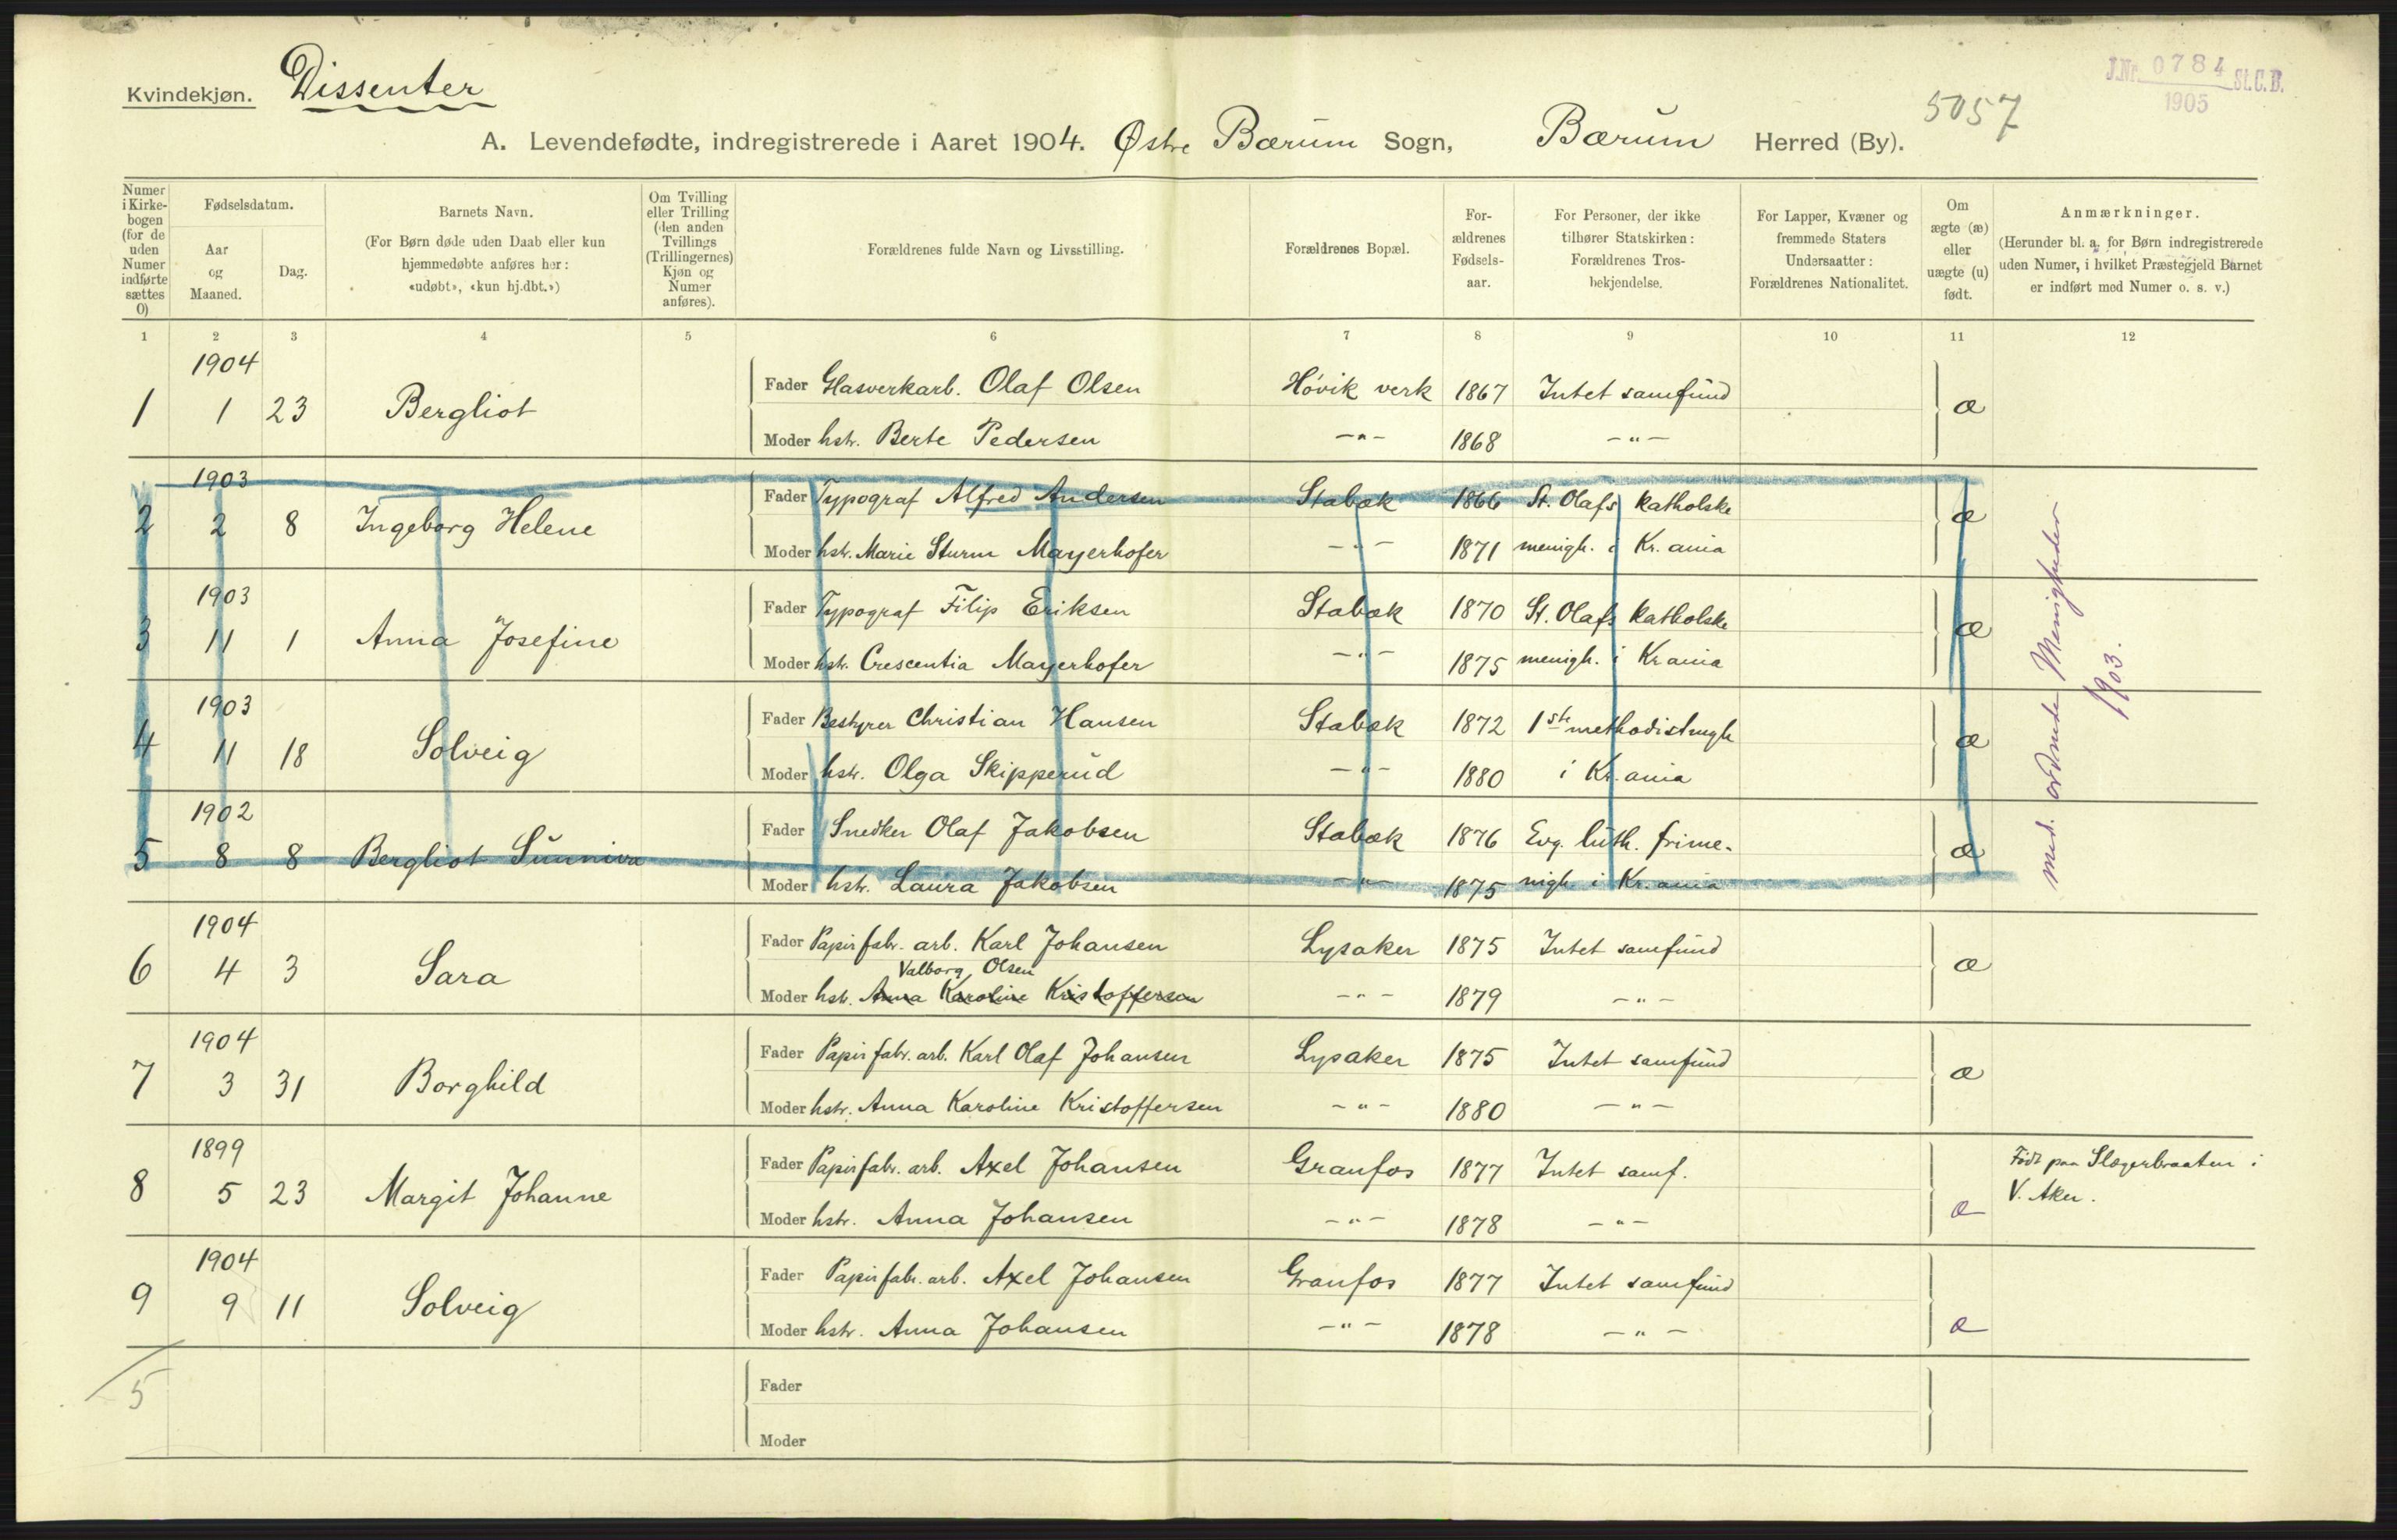 Kvindekjøn. Dissenter
J.Nr. 0784 St.C.B.
1905
5057
A. Levendefødte, indregistrerede i Aaret 1904. Østre Bærum Sogn, Bærum Herred (By).
Numer i Kirke- bogen (for de uden Numer indførte sættes 0)
Fødselsdatum.
Aar og Maaned.
Dag.
Barnets Navn.
(For Børn døde uden Daab eller kun
hjemmedøbte anføres her:
«udøbt», «kun hj.dbt.»)
Om Tvilling
eller Trilling
(den anden
Tvillings
(Trillingernes)
Kjøn og
Numer
anføres).
Forældrenes fulde Navn og Livsstilling.
Forældrenes Bopæl.
For-
ældrenes
Fødsels-
aar.
For Personer, der ikke
tilhører Statskirken:
Forældrenes Tros-
bekjendelse.
For Lapper, Kvæner og
fremmede Staters
Undersaatter:
Forældrenes Nationalitet.
Om
ægte (æ)
eller
uægte (u)
født.
Anmærkninger.
(Herunder bl. a. for Børn indregistrerede
uden Numer, i hvilket Præstegjeld Barnet
er indført med Numer o. s. v.)
1 2 3 4 5 6 7 8 9 10 11 12
1904
Fader Glasverkarb. Olaf Olsen Høvik verk 1867 Intet samfund
1 1 23 Bergliot æ
Moder hstr. Berte Pedersen -"- 1868 -"-
1903
Fader Typograf Alfred Andersen Stabæk 1866 St. Olafs katholske
2 2 8 Ingeborg Helene æ
Moder hstr. Marie Sturm Mayerhofer -"- 1871 menigh. i Kr.ania
1903
Fader Typograf Filip Eriksen Stabæk 1870 St. Olafs katholske
3 11 1 Anna Josefine æ
Moder hstr. Crescentia Mayerhofer -"- 1875 menigh. i Krania
1903
Fader Bestyrer Christian Hansen Stabæk 1872 1ste methodistmgh
4 11 18 Solveig æ
Moder hstr. Olga Skipperud -"- 1880 i Kr.ania
1902
Fader Snedker Olaf Jakobsen Stabæk 1876 Evg. luth. frime-
5 8 8 Bergliot Sunniva æ
Moder hstr. Laura Jakobsen -"- 1875 nigh i Kr.ania
med. ordnede Menigheder
1903.
1904
Fader Papirfabr. arb. Karl Johansen Lysaker 1875 Intet samfund
6 4 3 Sara æ
Valborg Olsen
Moder hstr. Anna Karoline Kristoffersen -"- 1879 -"-
1904
Fader Papirfabr. arb. Karl Olaf Johansen Lysaker 1875 Intet samfund
7 3 31 Borghild æ
Moder hstr. Anna Karoline Kristoffersen -"- 1880 -"-
1899
Fader Papirfabr. arb. Axel Johansen Granfos 1877 Intet samf. Født paa Slagerbraaten i
8 5 23 Margit Johanne æ V. Aker.
Moder hstr. Anna Johansen -"- 1878 -"-
1904
Fader Papirfabr. arb. Axel Johansen Granfos 1877 Intet samfund
9 9 11 Solveig æ
Moder hstr. Anna Johansen -"- 1878 -"-
5
Fader
Moder